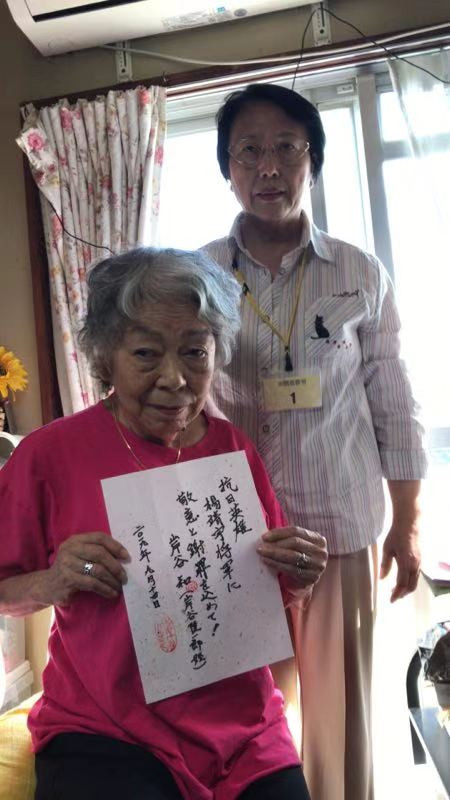 抗日英雄
楊靖宇将軍に
敬意と謝罪を込めて!
岸谷 和(岸谷隆一郎姪)
二〇一九年九月十四日
1